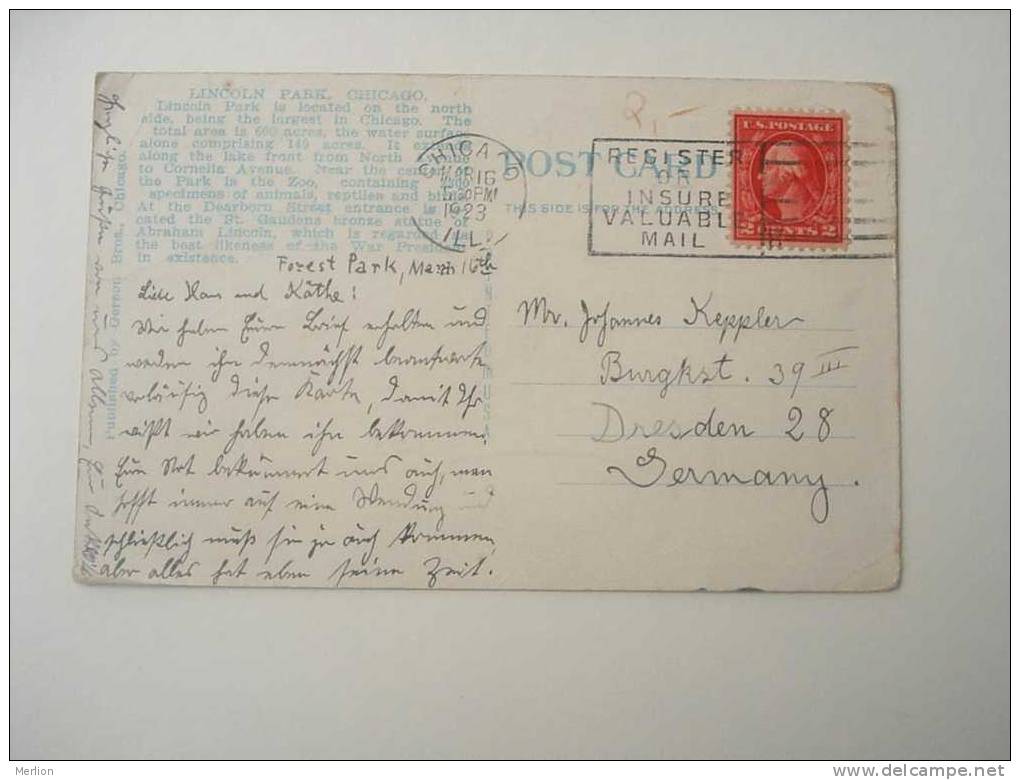 LINCOLN PARK, CHICAGO.
Lincoln Park is located on the north
side, being the largest in Chicago. The
total area is 600 acres, the water surface
alone comprising 149 acres. It extends
along the lake front from North Avenue
to Cornelia Avenue. Near the center of
the Park is the Zoo, containing
specimens of animals, reptiles and birds.
At the Dearborn Street entrance is lo-
cated the St. Gaudens bronze statue of
Abraham Lincoln, which is regarded as
the best likeness of the War President
in existence.
Published by Gerson Bros., Chicago.
POST CARD
THIS SIDE IS FOR THE ADDRESS
CHICAGO
MAR 16
PM
1923
ILL.
REGISTER
OR
INSURE
VALUABLE
MAIL
U.S. POSTAGE
2 CENTS 2
Forest Park, March 16th
Liebe Hans und Käthe!
Wir haben Euren Brief erhalten und
werden ihn demnächst beantworten
vorläufig diese Karte, damit Ihr
wißt wir haben ihn bekommen.
Eure Not bekümmert uns auch, man
hofft immer auf eine Wendung und
schließlich muß sie ja auch kommen,
aber alles hat eben seine Zeit.
Herzliche Grüße von uns allen,
Mr. Johannes Keppler
Burgkst. 39 III
Dresden 28
Germany.
Merlion
delcampe.net